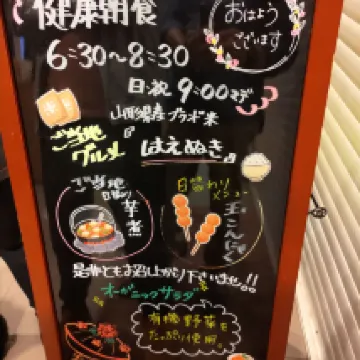 健康朝食
おはよう
ございます
6:30～8:30
日・祝 9:00まで
山形県産ブランド米
『はえぬき』
ご当地
グルメ
ご当地
芋煮
日替わり
メニュー
玉こんにゃく
是非ともお召し上がり下さいませ!!
オーガニックサラダ
有機野菜を
たっぷり使用